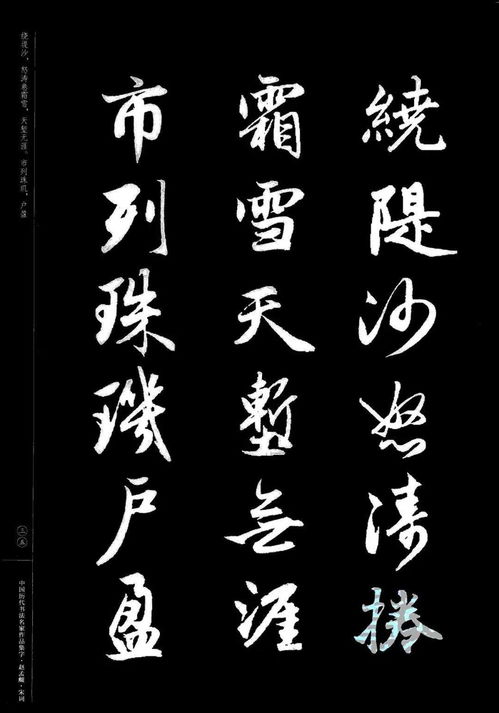 繞隄沙怒濤捲
霜雪天塹無涯
市列珠璣戶盈
绕堤沙,怒涛卷霜雪,天堑无涯。市列珠玑,户盈
三五
中国历代书法名家作品集字·赵孟頫·宋词